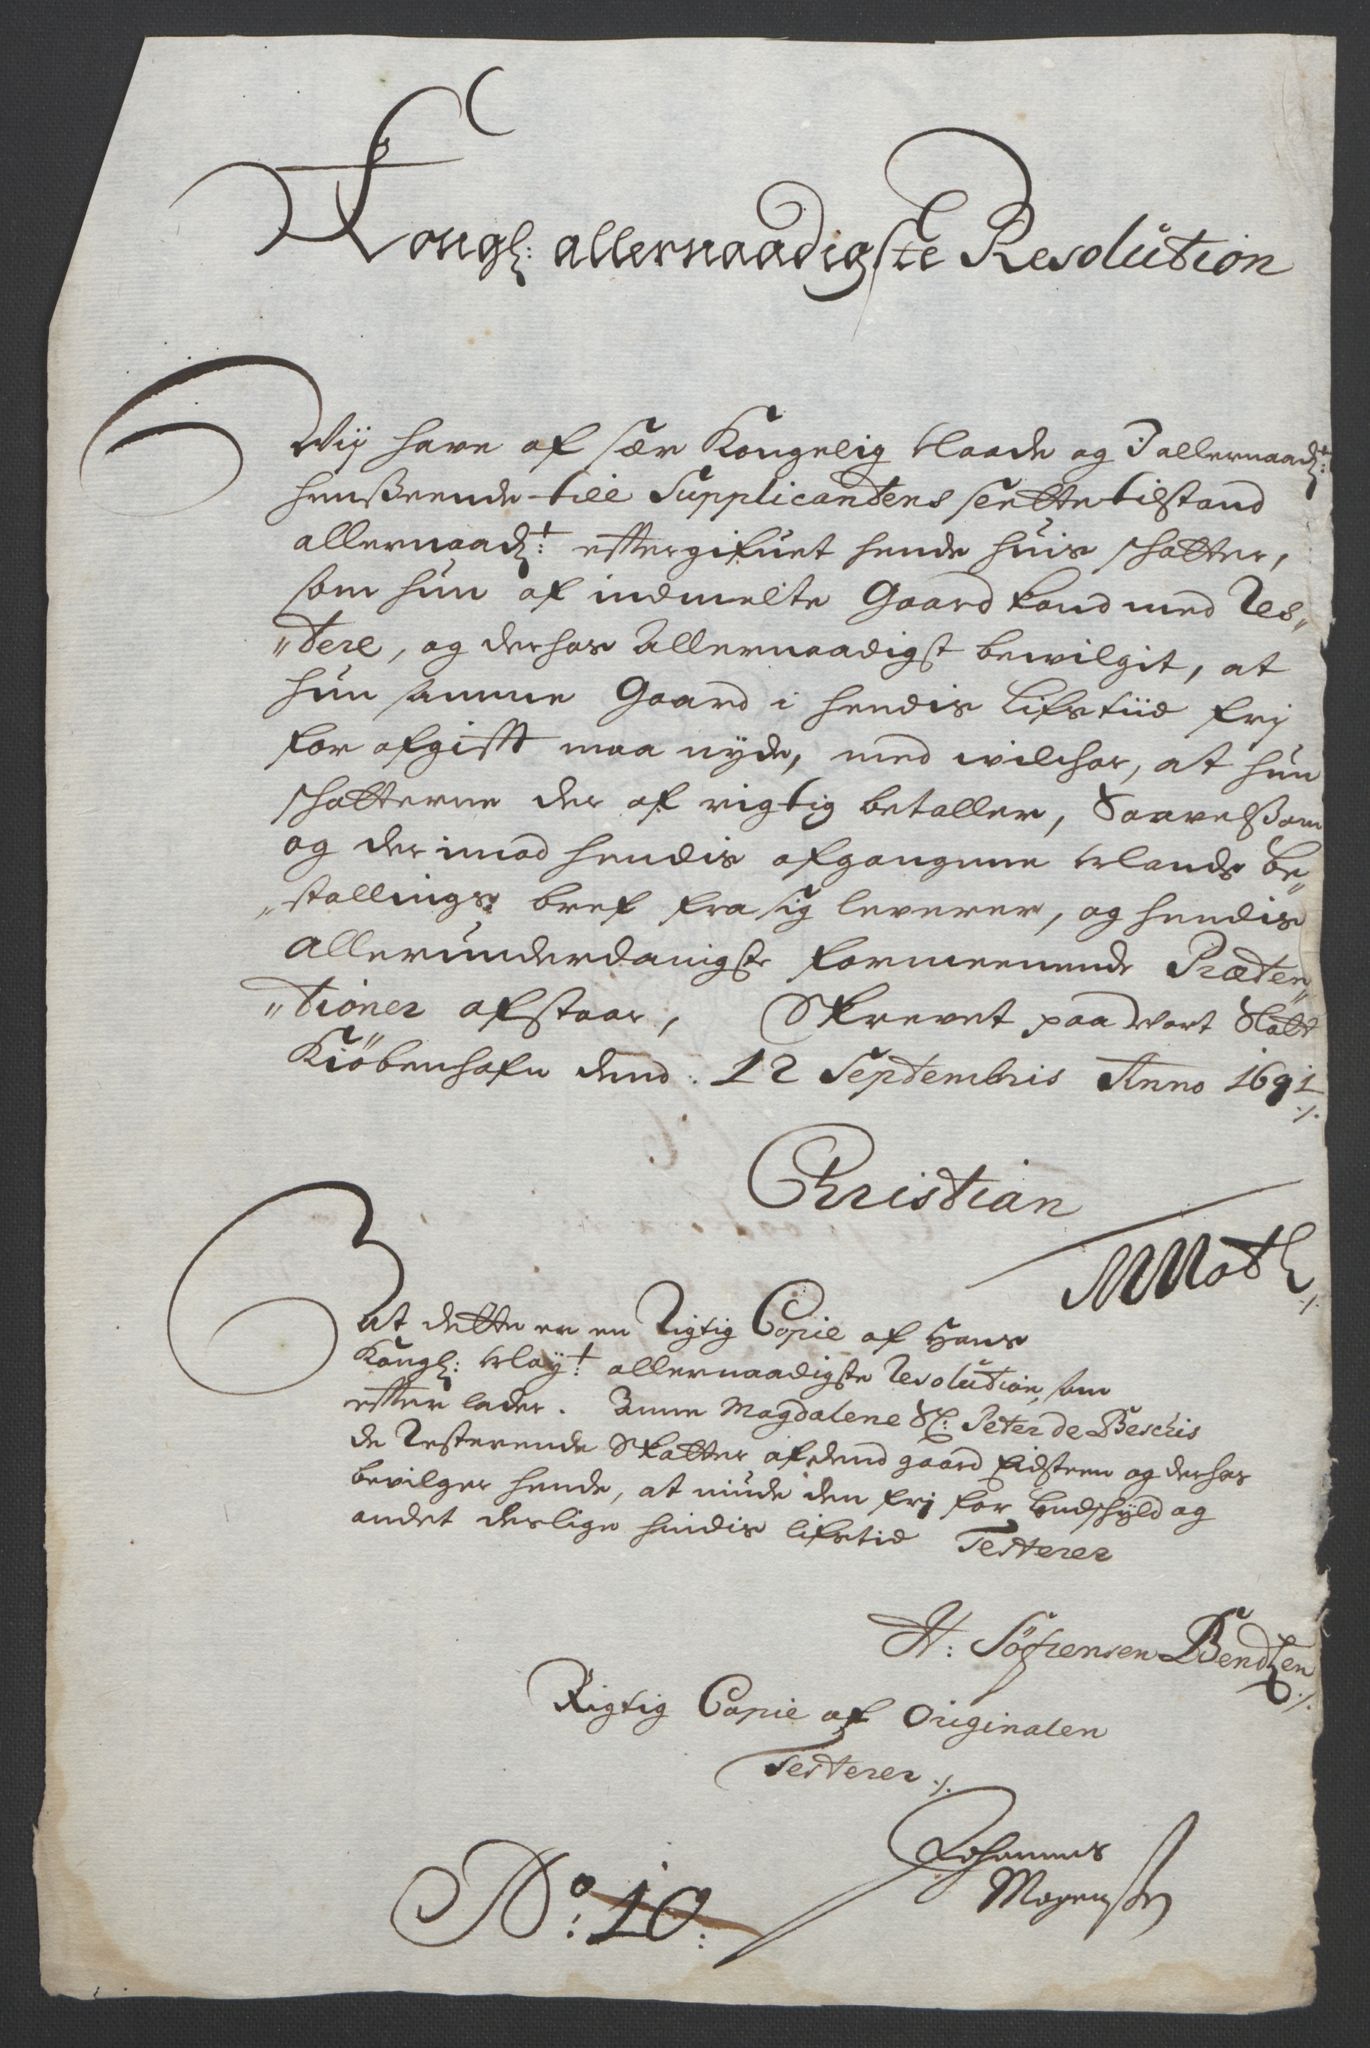 Kongl: allernaadigste Resolution
Wij have af sær Kongelig Naade og J allernaadt:
henseende till Supplicantens slette tilstand
allernaadt: eftergifuet hende huis skatter,
som hun af indmelte Gaard kand med Res„
„tere, og derhos Allernaadigst bewilgit, at
hun samme Gaard i hendis Lifstiid frj
for afgifft maa nyde, med wilchor, at hun
skatterne der af rigtig betaller, Saavelsom
og der imod hendis afgangne Mands be„
„stallings bref fra sig leverer, og hendis
allerunderdanigste formeenende Præten„
„tioner afstaar, Skrevet paa Wort Slott
Kiøbenhafn dend. 12 Septembris Anno 1691 ./.
Christian
MMoth ./.
At dette er en Rigtig Copie af Hans
Kongl: May:t allernaadigste Resolution, som
efter lader. Anne Magdalene Sl: Peter de Beschis
de Resterende Skatter af dend gaard Eidsteen og derhos
bevilger hende, at niude den frj for Landskyld og
andet deslige hindis lifstid Testerer
H: Söfrensen Bendtzen ./.
Rigtig Copie af Originalen
Testerer ./.
Johannes
Mogenssen
No: 10: